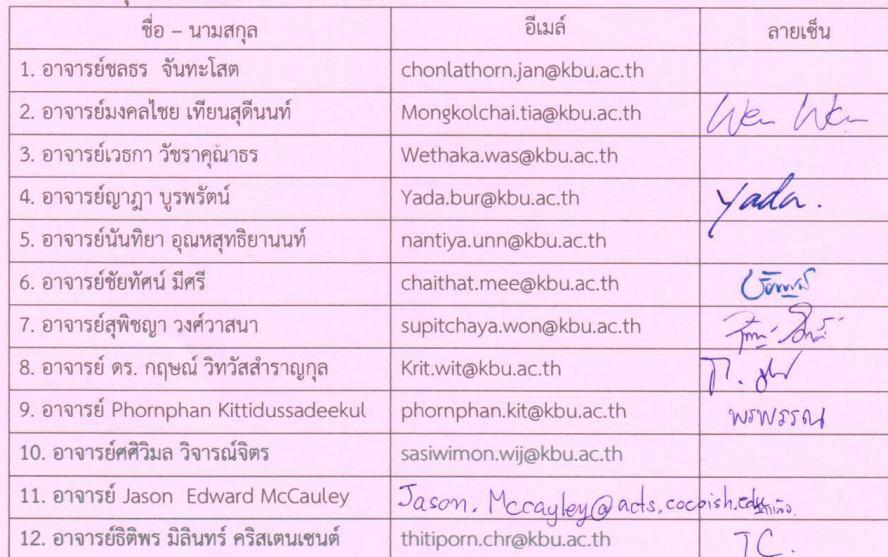 ชื่อ – นามสกุล อีเมล์ ลายเซ็น
1. อาจารย์ชลธร จันทะโสต chonlathorn.jan@kbu.ac.th
2. อาจารย์มงคลไชย เทียนสุดีนนท์ Mongkolchai.tia@kbu.ac.th
3. อาจารย์เวธกา วัชราคุณาธร Wethaka.was@kbu.ac.th
4. อาจารย์ญาฎา บูรพรัตน์ Yada.bur@kbu.ac.th Yada.
5. อาจารย์นันทิยา อุณหสุทธิยานนท์ nantiya.unn@kbu.ac.th
6. อาจารย์ชัยทัศน์ มีศรี chaithat.mee@kbu.ac.th
7. อาจารย์สุพิชญา วงศ์วาสนา supitchaya.won@kbu.ac.th
8. อาจารย์ ดร. กฤษณ์ วิทวัสสำราญกุล Krit.wit@kbu.ac.th
9. อาจารย์ Phornphan Kittidussadeekul phornphan.kit@kbu.ac.th พรพรรณ
10. อาจารย์ศศิวิมล วิจารณ์จิตร sasiwimon.wij@kbu.ac.th
11. อาจารย์ Jason Edward McCauley Jason.Mccayley@acts.cocoish.edu
12. อาจารย์ธิติพร มิลินทร์ คริสเตนเซนต์ thitiporn.chr@kbu.ac.th TC.